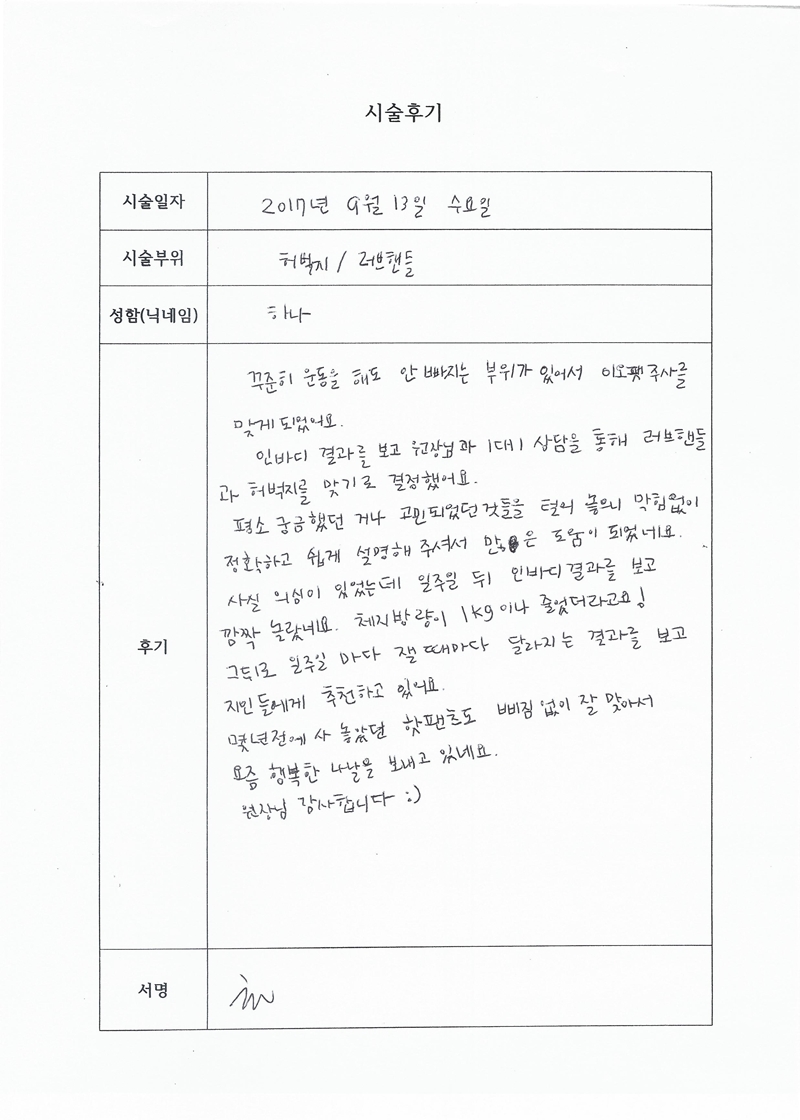 시술후기
시술일자 2017년 9월 13일 수요일
시술부위 허벅지 / 러브핸들
성함(닉네임) 하나
꾸준히 운동을 해도 안 빠지는 부위가 있어서 이오팻주사를
맞게되었어요.
인바디 결과를 보고 원장님과 1대1 상담을 통해 러브핸들
과 허벅지를 맞기로 결정했어요.
평소 궁금했던 거나 고민되었던것들을 막힘없이
정확하고 쉽게 설명해 주셔서 많은 도움이 되었네요.
사실 의심이 있었는데 일주일 뒤 인바디결과를 보고
깜짝 놀랐네요. 체지방량이 1kg이나 줄었더라고요!
후기
그뒤로 일주일 마다 잴 때마다 달라지는 결과를 보고
지인들에게 추천하고 있어요.
몇년전에 사 놓았던 핫팬츠도 삐짐없이 잘 맞아서
요즘 행복한 나날을 보내고 있네요.
원장님 감사합니다 :)
서명